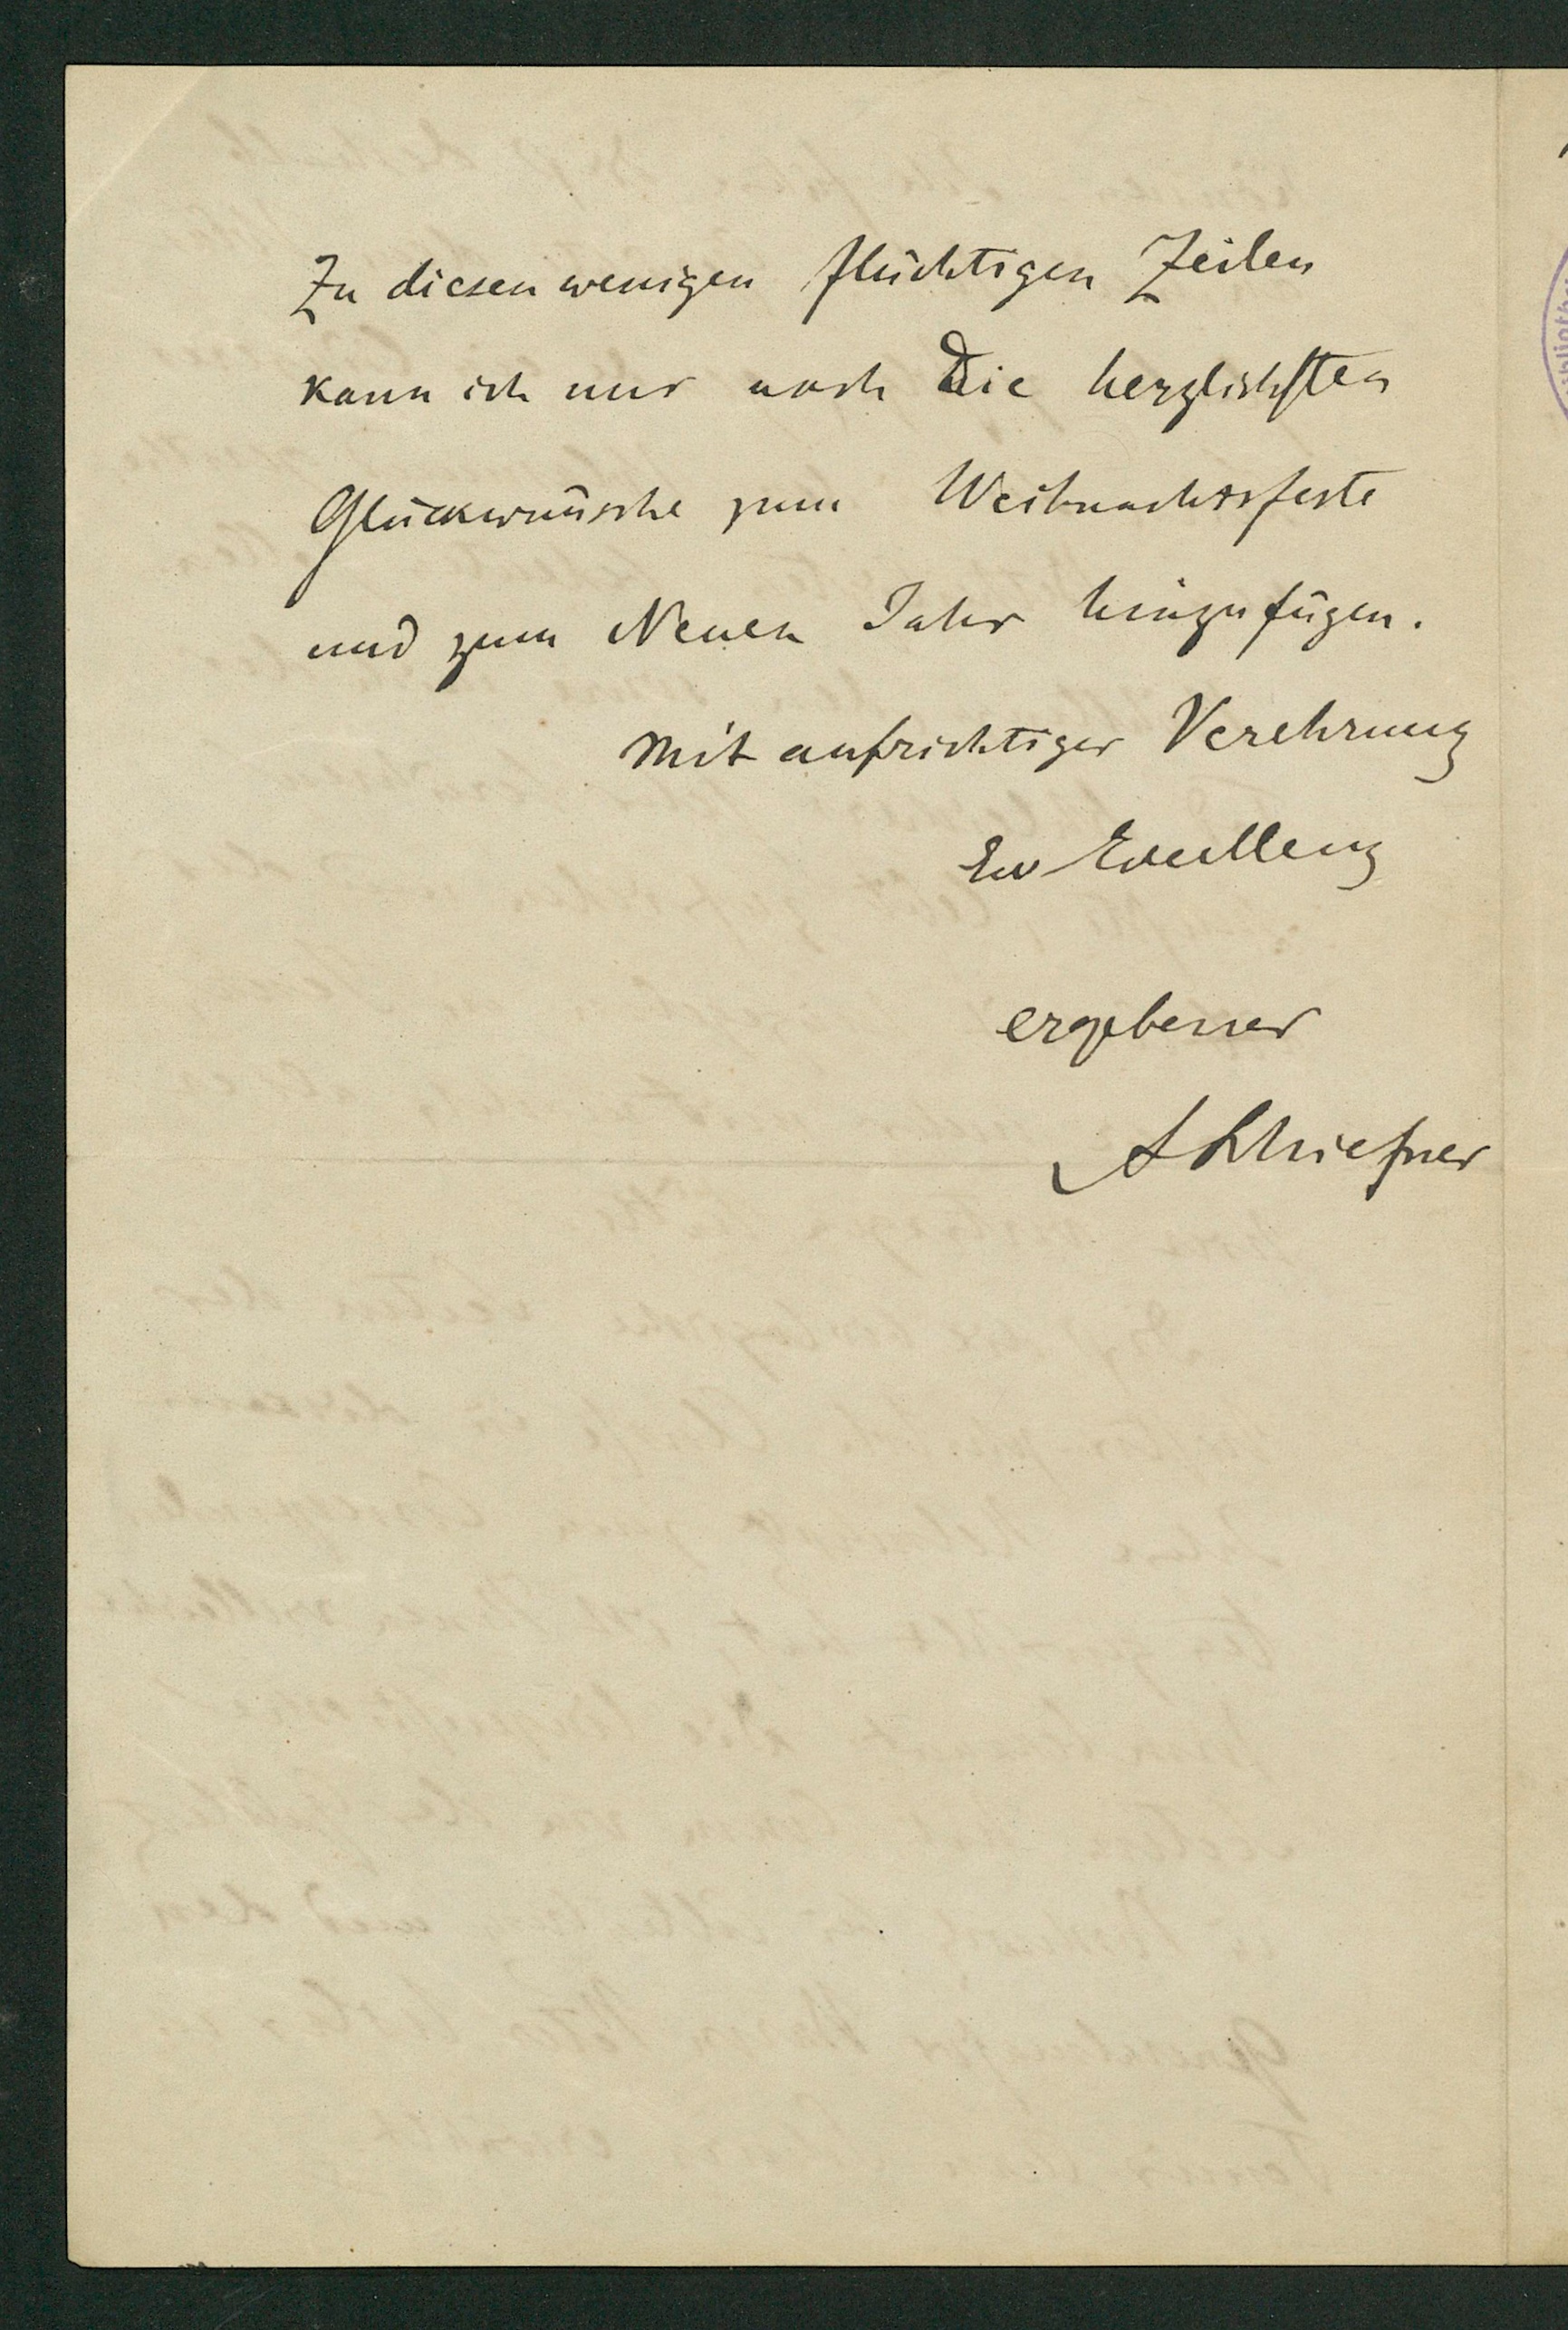 Zu diesen wenigen flüchtigen Zeilen
kann ich nur noch die herzlichsten
Glückwünsche zum Weihnachtsfeste
und zum Neuen Jahr hinzufügen.
Mit aufrichtiger Verehrung
Ew Excellenz
ergebener
ASchiefner